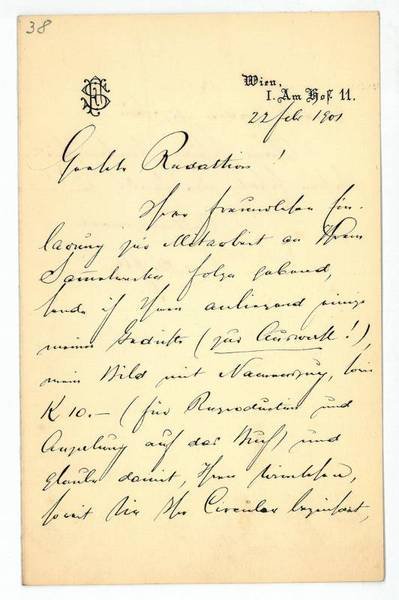 38
Wien,
I. Am Hof 11.
22 feb 1901
Geehrte Redaktion!
Ihrer freundlichen Ein-
ladung zur Mitarbeit an Ihrem
Sammelwerke folge gebend,
sende ich Ihnen anliegend einige
meiner Gedichte (zur Auswahl!),
mein Bild mit Namenszug, sowie
K 10.– (für Reproduction und
auf das Buch) und
glaube damit, Ihren Wünschen,
soweit Sie Ihr Circular